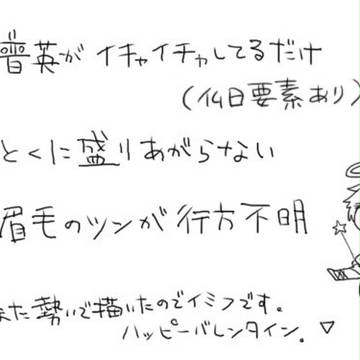 普英がイチャイチャしてるだけ
(仏日要素あり)
とくに盛りあがらない
眉毛のツンが行方不明
また勢いで描いたのでイミフです。
ハッピーバレンタイン。▽